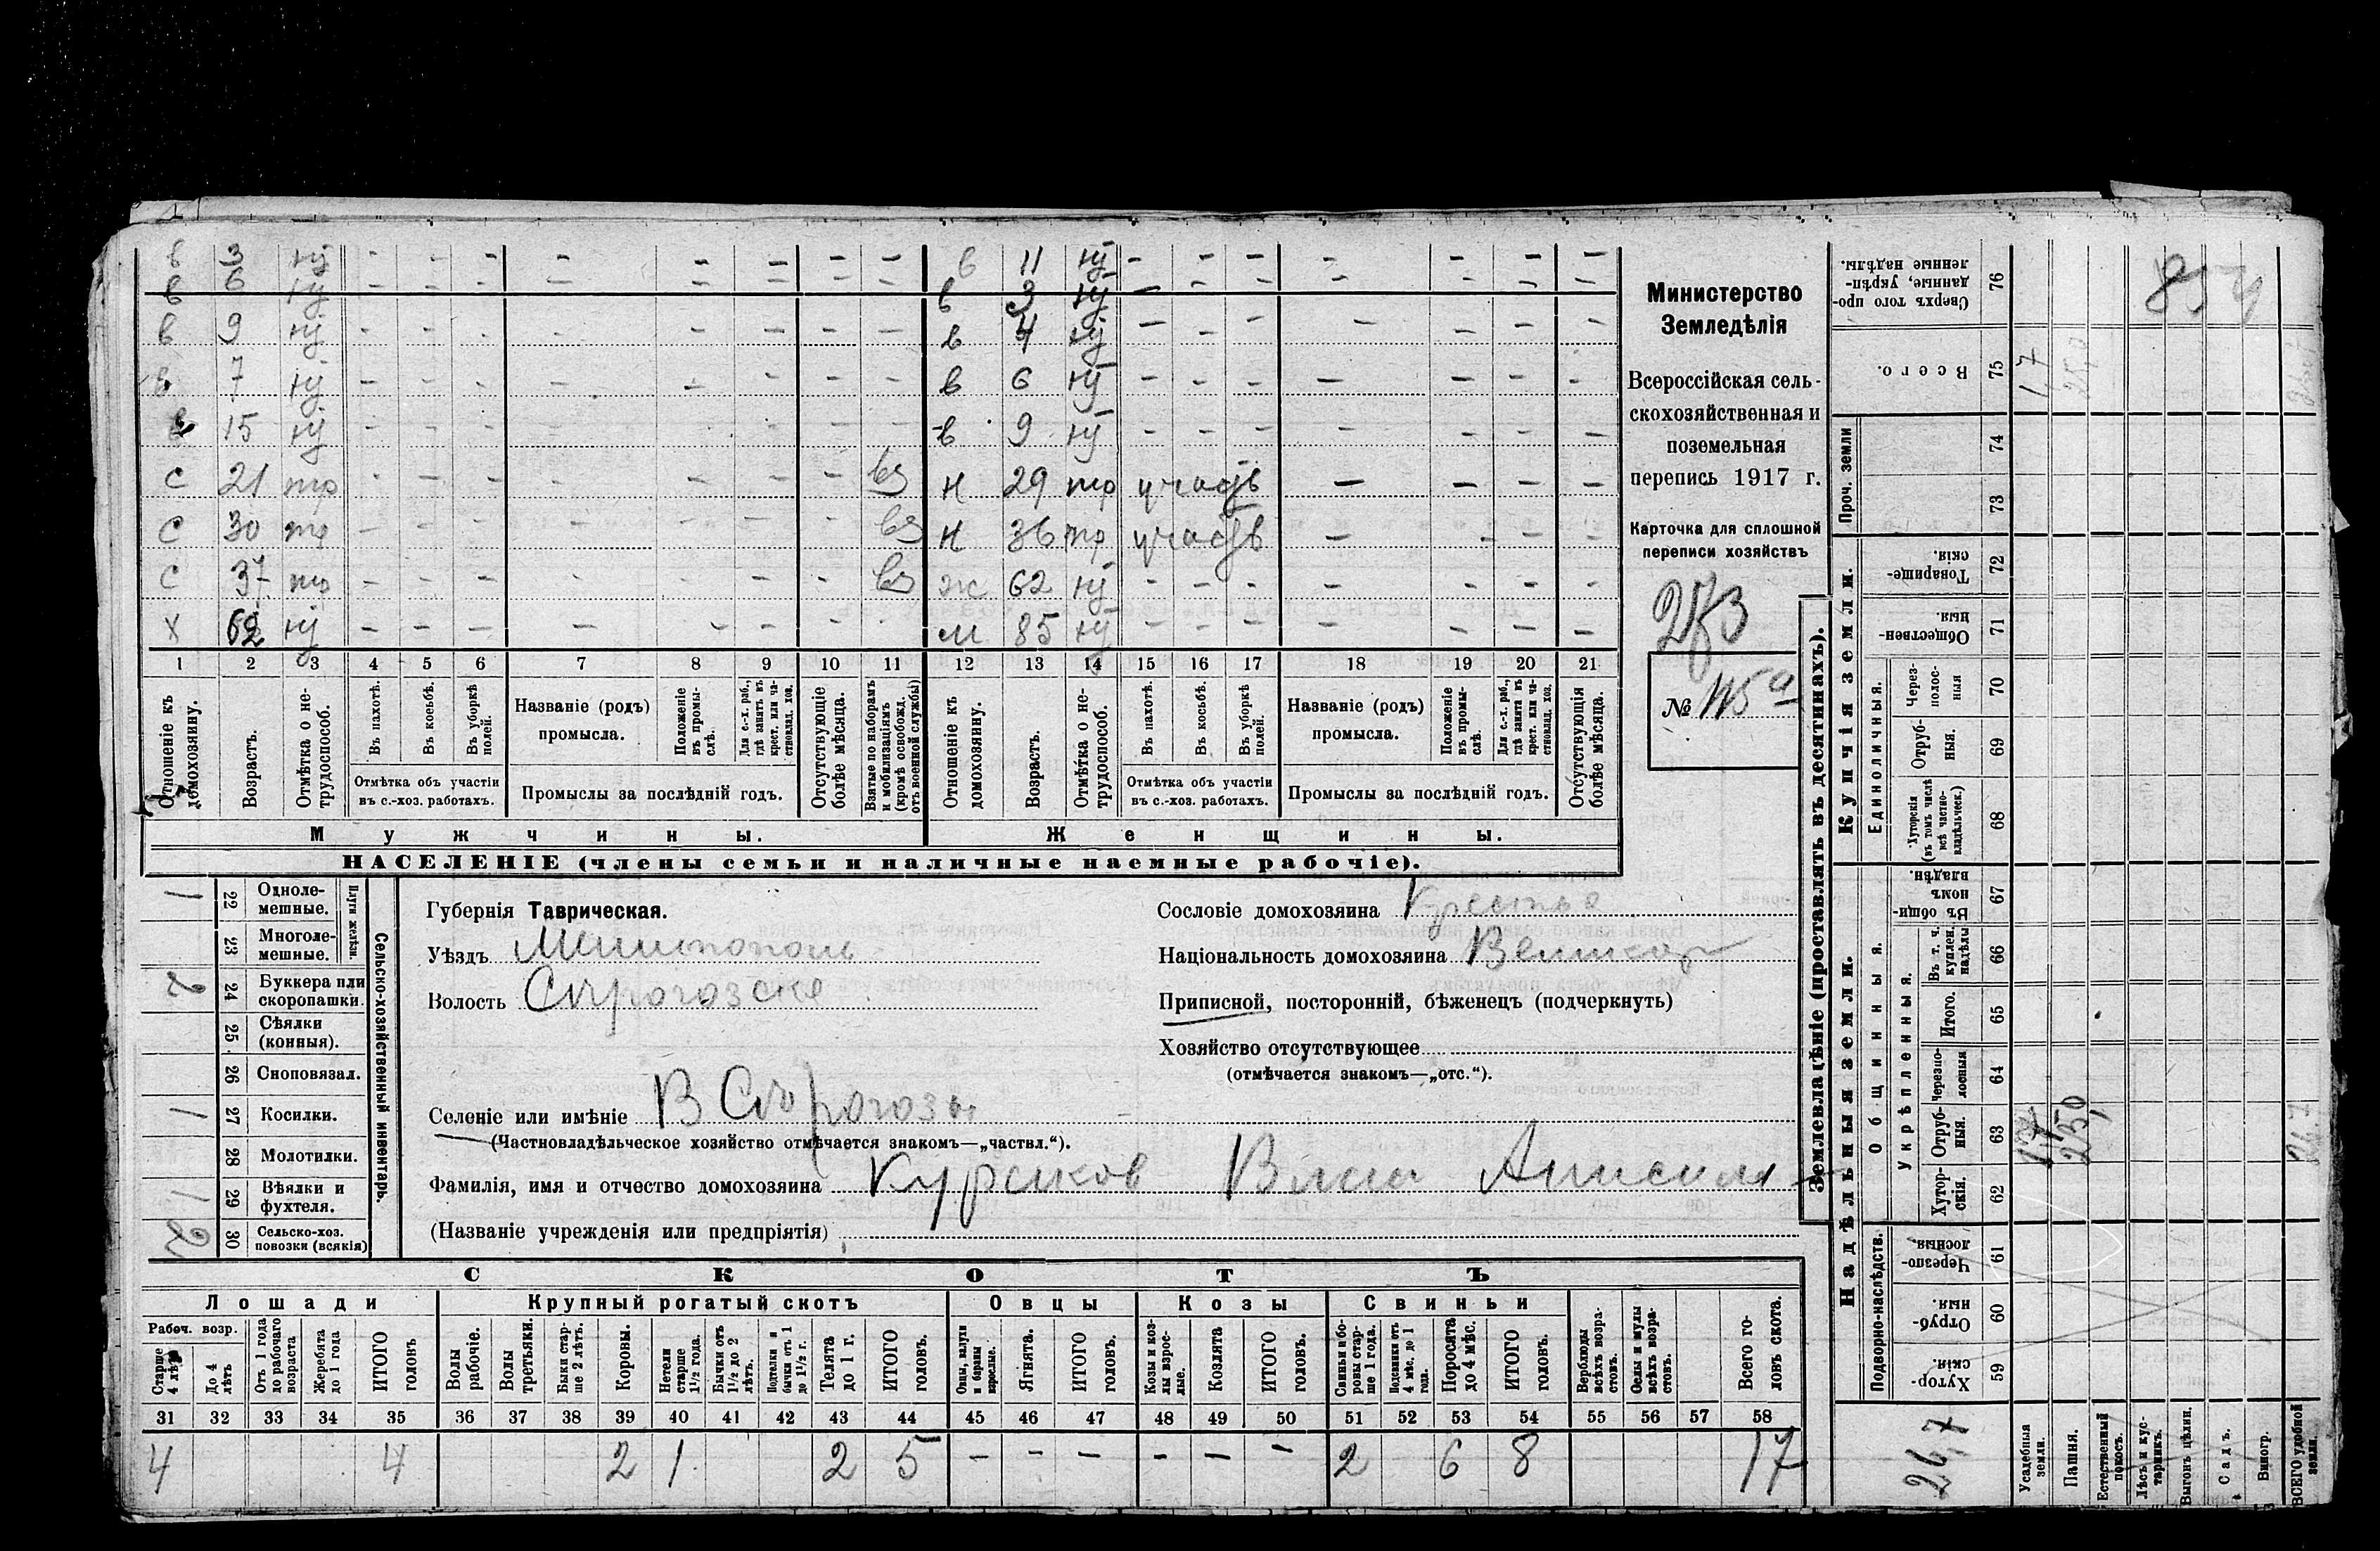 в 3 нт - - - - - - - - в 11 нт - - - - - - -
в 6 нт - - - - - - - - в 3 нт - - - - - - -
в 9 нт - - - - - - - - в 4 нт - - - - - - -
в 7 нт - - - - - - - - в 6 нт - - - - - - -
в 15 нт - - - - - - - - в 9 нт - - - - - - -
с 21 тр - - - - - - - вз н 29 тр участв - - - -
с 30 тр - - - - - - - вз н 36 тр участв - - - -
с 37 тр - - - - - - - вз ж 62 нт - - - - - - -
х 62 нт - - - - - - - - м 85 нт - - - - - - -
1 2 3 4 5 6 7 8 9 10 11 12 13 14 15 16 17 18 19 20 21
Отношеніе къ домохозяину.
Возрастъ.
Отмѣтка о нетрудоспособ.
Въ пахотѣ.
Въ косьбѣ.
Въ уборкѣ полей.
Отмѣтка объ участіи
въ с.-хоз. работахъ.
Названіе (родъ)
промысла.
Положеніе въ промыслѣ.
Для с.-х. раб., гдѣ занятъ въ крест. или частновлад. хоз.
Промыслы за послѣдній годъ.
Отсутствующіе болѣе мѣсяца.
Взятые по наборамъ и мобилизаціямъ (кромѣ освобожд. отъ военной службы)
Отношеніе къ домохозяину.
Возрастъ.
Отмѣтка о нетрудоспособ.
Въ пахотѣ.
Въ косьбѣ.
Въ уборкѣ полей.
Отмѣтка объ участіи
въ с.-хоз. работахъ.
Названіе (родъ)
промысла.
Положеніе въ промыслѣ.
Для с.-х. раб., гдѣ занята въ крест. или частновлад. хоз.
Промыслы за послѣдній годъ.
Отсутствующія болѣе мѣсяца.
Мужчины. Женщины.
НАСЕЛЕНІЕ (члены семьи и наличные наемные рабочіе).
Министерство
Земледѣлія
Всероссійская сель-
скохозяйственная и
поземельная
перепись 1917 г.
Карточка для сплошной
переписи хозяйствъ
№
Сельско-хозяйственный инвентарь.
Плуги желѣзн.
1 22 Одноле-
мешные.
23 Многоле-
мешные.
2 24 Буккера или
скоропашки.
25 Сѣялки
(конныя).
26 Сноповязал.
1 27 Косилки.
28 Молотилки.
1 29 Вѣялки и
фухтеля.
2 30 Сельско-хоз.
повозки (всякія)
Губернія Таврическая.
Уѣздъ Мелитополь
Волость Сѣрогозске
Селеніе или имѣніе В Сѣрогозы
(Частновладѣльческое хозяйство отмѣчается знакомъ—„частвл.“).
Фамилія, имя и отчество домохозяина Курсиков
(Названіе учрежденія или предпріятія)
Сословіе домохозяина Крестья
Національность домохозяина Великор
Приписной, посторонній, бѣженецъ (подчеркнуть)
Хозяйство отсутствующее
(отмѣчается знакомъ—„отс.“).
СКОТЪ
Лошади Крупный рогатый скотъ Овцы Козы Свиньи
Рабоч. возр.
Старше 4 лѣтъ
До 4 лѣтъ
Отъ 1 года до рабочаго возраста
Жеребята до 1 года
ИТОГО головъ
Волы рабочіе.
Волы третьяки.
Быки старше 2 лѣтъ.
Коровы.
Нетели старше 1½ года.
Бычки отъ 1½ до 2 лѣтъ.
Подтелки и бычки отъ 1 до 1½ г.
Телята до 1 г.
ИТОГО головъ.
Овцы, валухи и бараны взрослые.
Ягнята.
ИТОГО головъ.
Козы и козлы взрослые.
Козлята
ИТОГО головъ.
Свиньи и боровы старше 1 года.
Подсвинки отъ 4 мѣс. до 1 года.
Поросята до 4 мѣс.
ИТОГО головъ.
Верблюды всѣхъ возрастовъ.
Ослы и мулы всѣхъ возрастовъ.
Всего головъ скота.
31 32 33 34 35 36 37 38 39 40 41 42 43 44 45 46 47 48 49 50 51 52 53 54 55 56 57 58
4 4 2 1 2 5 - - - - - - 2 6 8 17
Землевладѣніе (проставлять въ десятинахъ).
Надѣльныя земли. Купчія земли. Проч. земли
Подворно-наслѣдств.
Общинныя.
Укрѣпленныя.
Единоличныя.
Хуторскія. 59
Отрубныя. 60
Черезполосныя. 61
Хуторскія. 62
Отрубныя. 63
Черезполосныя 64
Итого. 65
Въ т. ч. куплен. надѣлы 66
Въ общинномъ владѣн. 67
Хуторскія (въ томъ числѣ всѣ частновладѣльческ.) 68
Отрубныя. 69
Черезполосныя 70
Общественныя. 71
Товарищескія. 72
73
74
Всего. 75
Сверхъ того проданные, укрѣпленные надѣлы. 76
26,7
Усадебныя земли. 1,7 1,7
Пашня. 25,0
Естественный покосъ.
Лѣсъ и кустарникъ.
Выгонъ цѣлин.
Садъ.
Виногр.
ВСЕГО удобной земли.